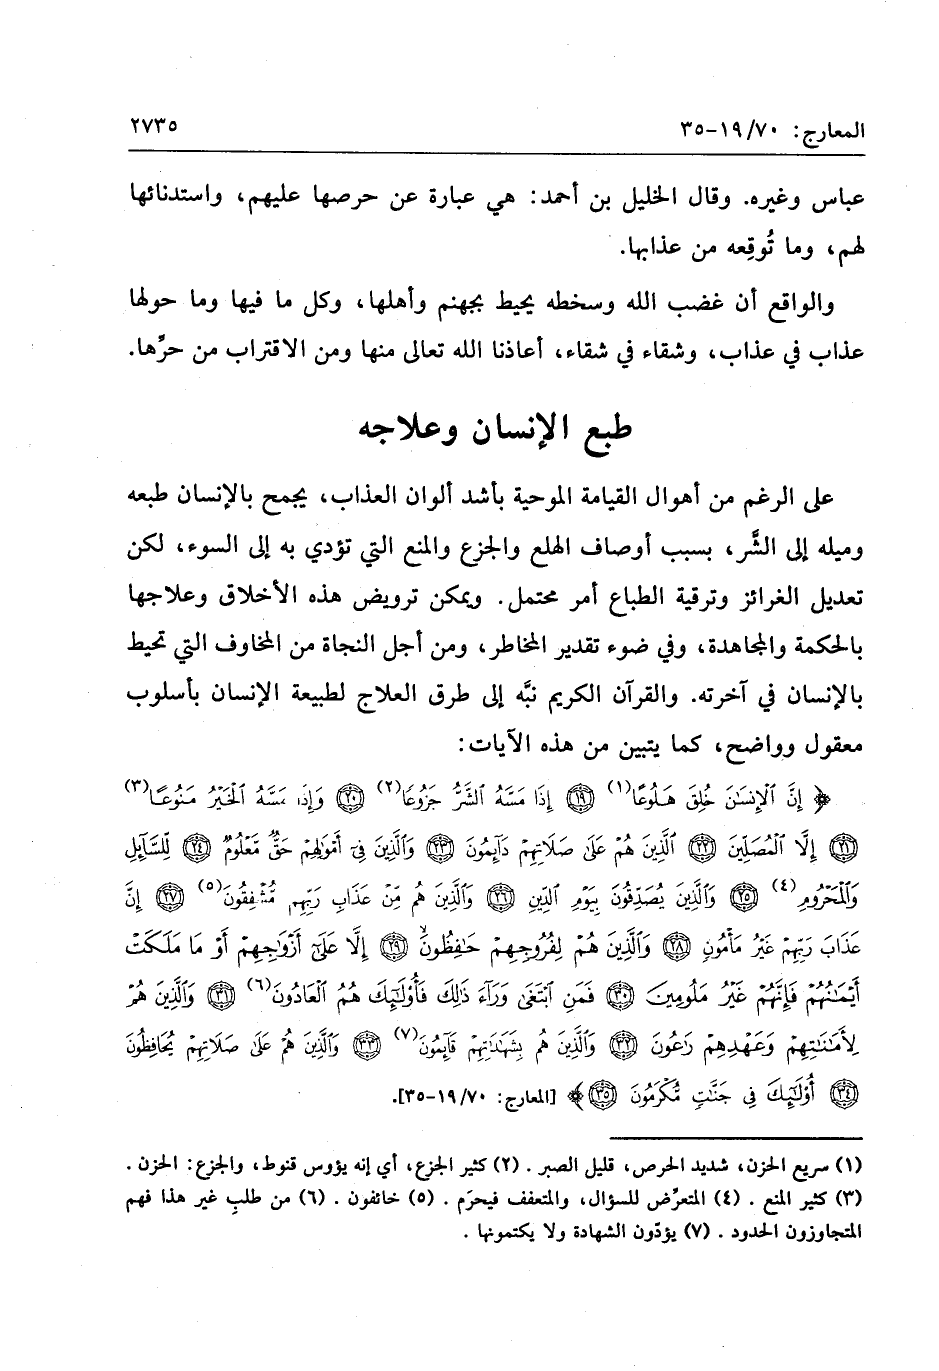 المعارج: ١٩/٧٠-٣٥ ٢٧٣٥
عباس وغيره. وقال الخليل بن أحمد: هي عبارة عن حرصها عليهم، واستدنائها
لهم، وما تُوقِعه من عذابها.
والواقع أن غضب الله وسخطه يحيط بجهنم وأهلها، وكل ما فيها وما حولها
عذاب في عذاب، وشقاء في شقاء، أعاذنا الله تعالى منها ومن الاقتراب من حرِّها.
طبع الإنسان وعلاجه
على الرغم من أهوال القيامة الموحية بأشد ألوان العذاب، يجمح بالإنسان طبعه
وميله إلى الشَّر، بسبب أوصاف الهلع والجزع والمنع التي تؤدي به إلى السوء، لكن
تعديل الغرائز وترقية الطباع أمر محتمل. ويمكن ترويض هذه الأخلاق وعلاجها
بالحكمة والمجاهدة، وفي ضوء تقدير المخاطر، ومن أجل النجاة من المخاوف التي تحيط
بالإنسان في آخرته. والقرآن الكريم نبَّه إلى طرق العلاج لطبيعة الإنسان بأسلوب
معقول وواضح، كما يتبين من هذه الآيات:
﴿ إِنَّ ٱلْإِنسَٰنَ خُلِقَ هَلُوعًا(١) ۝١٩ إِذَا مَسَّهُ ٱلشَّرُّ جَزُوعًا(٢) ۝٢٠ وَإِذَا مَسَّهُ ٱلْخَيْرُ مَنُوعًا(٣)
۝٢١ إِلَّا ٱلْمُصَلِّينَ ۝٢٢ ٱلَّذِينَ هُمْ عَلَىٰ صَلَاتِهِمْ دَآئِمُونَ ۝٢٣ وَٱلَّذِينَ فِىٓ أَمْوَٰلِهِمْ حَقٌّ مَّعْلُومٌ ۝٢٤ لِّلسَّآئِلِ
وَٱلْمَحْرُومِ(٤) ۝٢٥ وَٱلَّذِينَ يُصَدِّقُونَ بِيَوْمِ ٱلدِّينِ ۝٢٦ وَٱلَّذِينَ هُم مِّنْ عَذَابِ رَبِّهِم مُّشْفِقُونَ(٥) ۝٢٧ إِنَّ
عَذَابَ رَبِّهِمْ غَيْرُ مَأْمُونٍ ۝٢٨ وَٱلَّذِينَ هُمْ لِفُرُوجِهِمْ حَٰفِظُونَ ۝٢٩ إِلَّا عَلَىٰٓ أَزْوَٰجِهِمْ أَوْ مَا مَلَكَتْ
أَيْمَٰنُهُمْ فَإِنَّهُمْ غَيْرُ مَلُومِينَ ۝٣٠ فَمَنِ ٱبْتَغَىٰ وَرَآءَ ذَٰلِكَ فَأُو۟لَٰٓئِكَ هُمُ ٱلْعَادُونَ(٦) ۝٣١ وَٱلَّذِينَ هُمْ
لِأَمَٰنَٰتِهِمْ وَعَهْدِهِمْ رَٰعُونَ ۝٣٢ وَٱلَّذِينَ هُم بِشَهَٰدَٰتِهِمْ قَآئِمُونَ(٧) ۝٣٣ وَٱلَّذِينَ هُمْ عَلَىٰ صَلَاتِهِمْ يُحَافِظُونَ
۝٣٤ أُو۟لَٰٓئِكَ فِى جَنَّٰتٍ مُّكْرَمُونَ ۝٣٥ ﴾ [المعارج: ١٩/٧٠-٣٥].
(١) سريع الحزن، شديد الحرص، قليل الصبر . (٢) كثير الجزع، أي إنه يؤوس قنوط، والجزع: الحزن .
(٣) كثير المنع . (٤) المتعرِّض للسؤال، والمتعفف فيحرَم . (٥) خائفون . (٦) من طلب غير هذا فهم
المتجاوزون الحدود . (٧) يؤدّون الشهادة ولا يكتمونها .